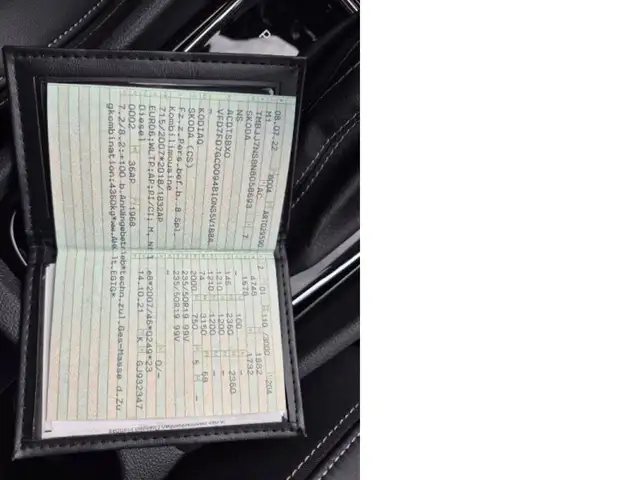 08.07.22 8004 ART029590 2
M1 AC
TMBJJ7NS8N8058693 7
SKODA
NS
ACDTSBX0
VFD7FD7GCD094BIGNS5V1B8A
-
KODIAQ
SKODA (CS)
Fz.z.Pers.bef.b. 8 Spl.
Kombilimousine
715/2007*2018/1832AP
EURO6;WLTP;AP;PI/CI; M, N1 I
Diesel
0002 36AP 1968
7.2/8.2:+100 b.Anhängebetrieb*techn.zul.Ges-Masse d.Zu
gkombination:4360kg*ww.AHK lt.EGTG*
01 110 /3000 204
4745 1882
1676 1732
- 100 -
146 2360 2360
1210 1200 -
1210 1200 -
74 3150 68
2000 750 5 -
235/50R19 99V
235/50R19 99V
-
0/-
e8*2007/46*0249*23
14.10.21 K 0J932347